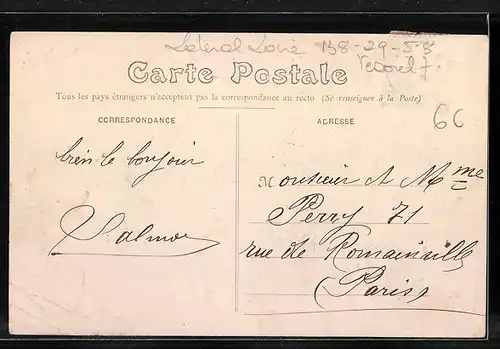 Lateral Loire 138-29-5-8
Carte Postale
Tous les pays étrangers n'acceptent pas la correspondance au recto (Se renseigner à la Poste)
66
CORRESPONDANCE
ADRESSE
bien le bonjour
Monsieur et Mme
Perry 71
rue de Romainville
(Paris)